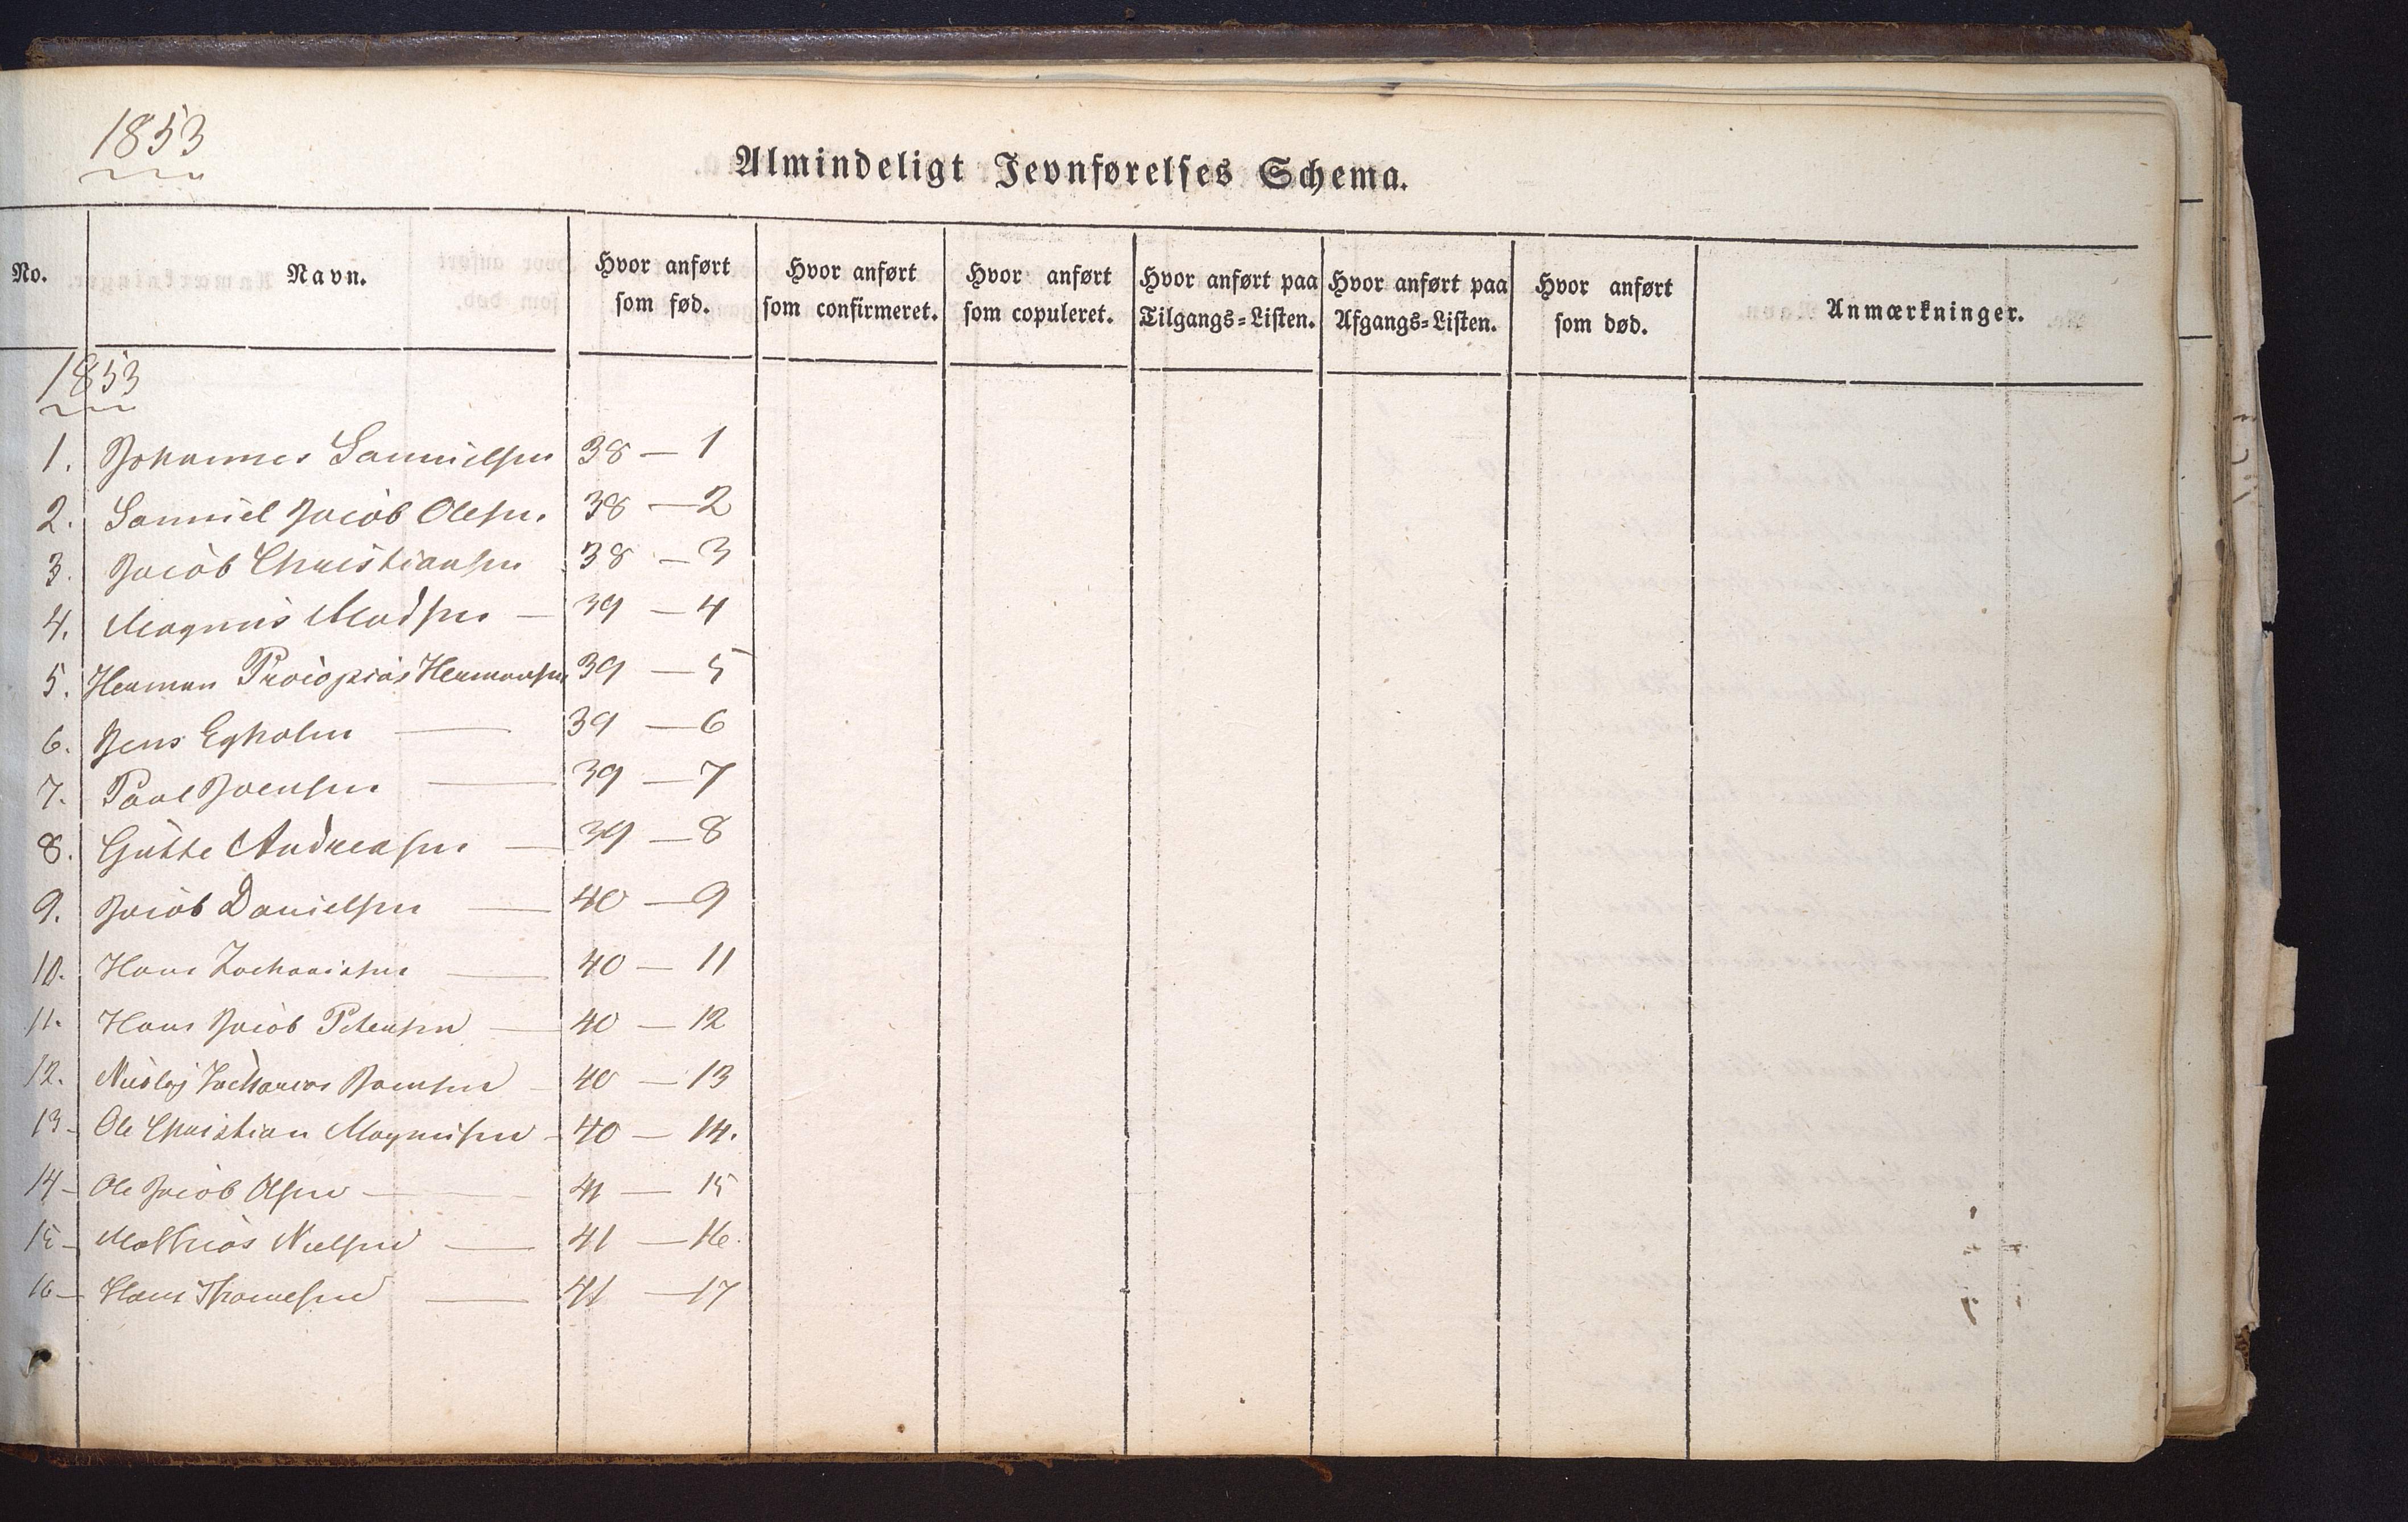 1853
Almindeligt Jevnførelses Schema.
No. Navn. Hvor anført som fød. Hvor anført som confirmeret. Hvor anført som copuleret. Hvor anført paa Tilgangs=Listen. Hvor anført paa Afgangs=Listen. Hvor anført som død. Anmærkninger.
1853
1. Johannes Samuelsen 38 — 1
2. Samuel Jacob Olesen. 38 — 2
3. Jacob Christiansen 38 — 3
4. Magnus Madsen — 39 — 4
5. Herman Procopius Hermansen 39 — 5
6. Jens Egholm — 39 — 6
7. Paul Joensen — 39 — 7
8. Gutte Andreasen — 39 — 8
9. Jacob Danielsen — 40 — 9
10. Hans Zachariasen — 40 — 11
11. Hans Jacob Petersen — 40 — 12
12. Nicolaj Zacharias Joensen — 40 — 13
13 — Ole Christian Magnusen — 40 — 14.
14 — Ole Jacob Olsen — 41 — 15
15 — Mathias Nielsen — 41 — 16.
16 — Hans Thomesen — 41 — 17